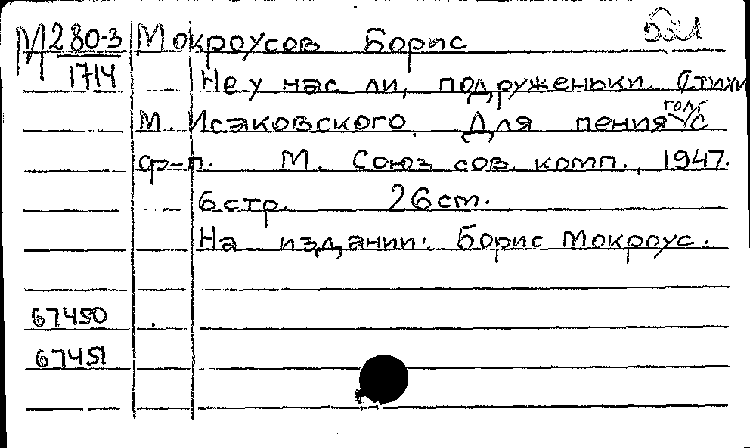 М 280-3 Мокроусов Борис
1714 Не у нас ли, подруженьки. Стихи
М. Исаковского. Для пения голос с
ф-п. М. Союз сов. комп., 1947.
6 стр. 26 ст.
На издании: Борис Мокроус.
67450
67451